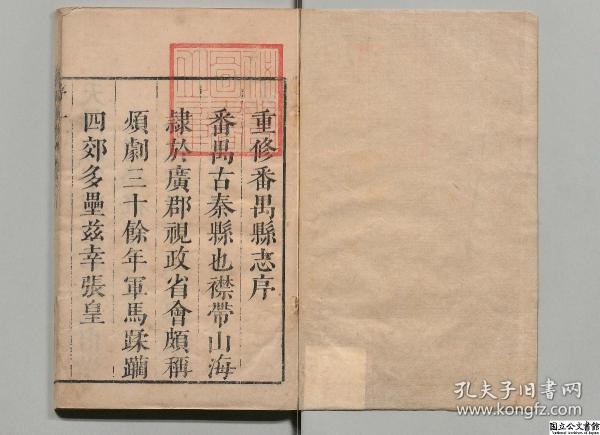 重修番禺縣志序
番禺古秦縣也襟帶山海
隸於廣郡視政省會頗稱
煩劇三十餘年軍馬蹂躪
四郊多壘茲幸張皇
孔夫子旧书网
www.kongfz.com
国立公文書館
National Archives of Japan